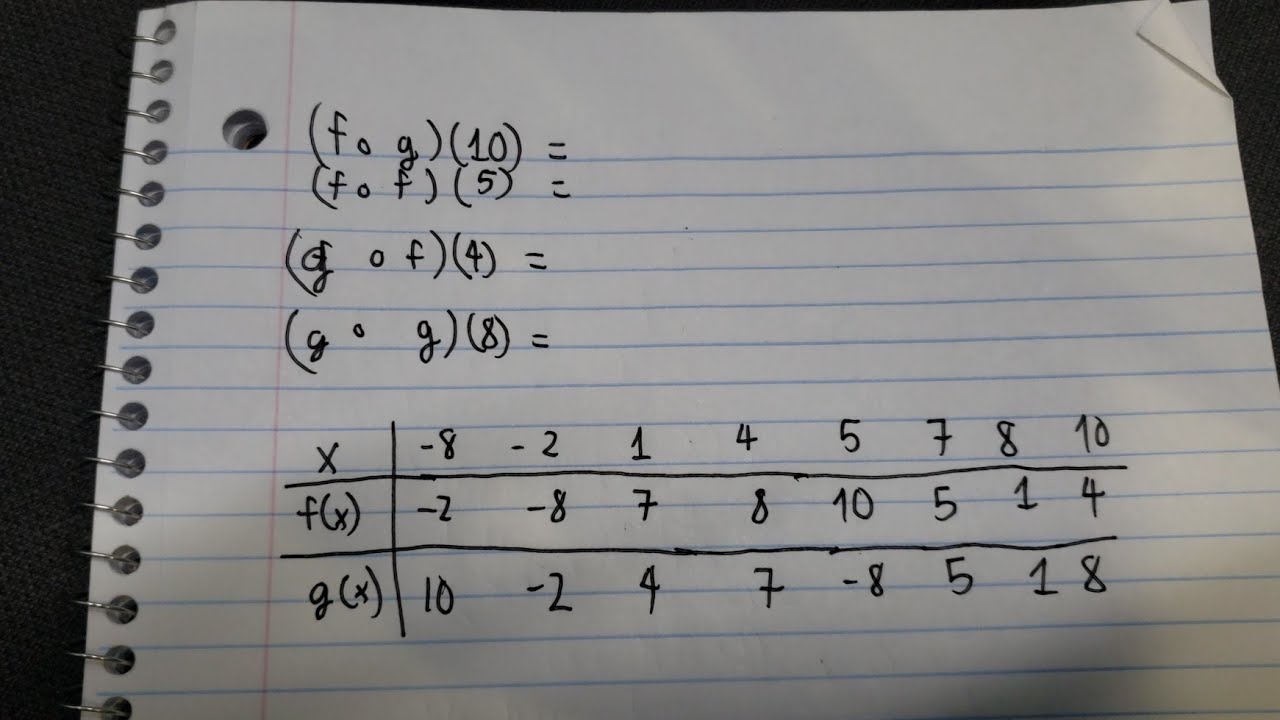 (f ∘ g)(10) =
(f ∘ f)(5) =
(g ∘ f)(4) =
(g ∘ g)(8) =
x | -8 -2 1 4 5 7 8 10
f(x) | -2 -8 7 8 10 5 1 4
g(x) | 10 -2 4 7 -8 5 1 8